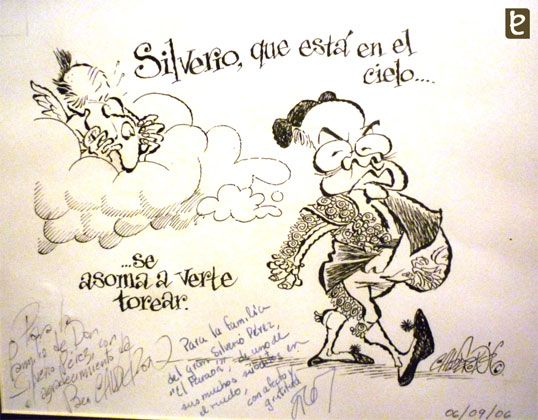 Silverio, que está en el
cielo....
...se
asoma a verte
torear.
Para la
familia de Don
Silverio Pérez, con
agradecimiento de
Paco CALDERÓN
Para la familia
del gran Silverio Pérez,
"El Faraón", de uno de
sus muchos súbditos en
el ruedo, con afecto y
gratitud
CALDERÓN
06/09/06